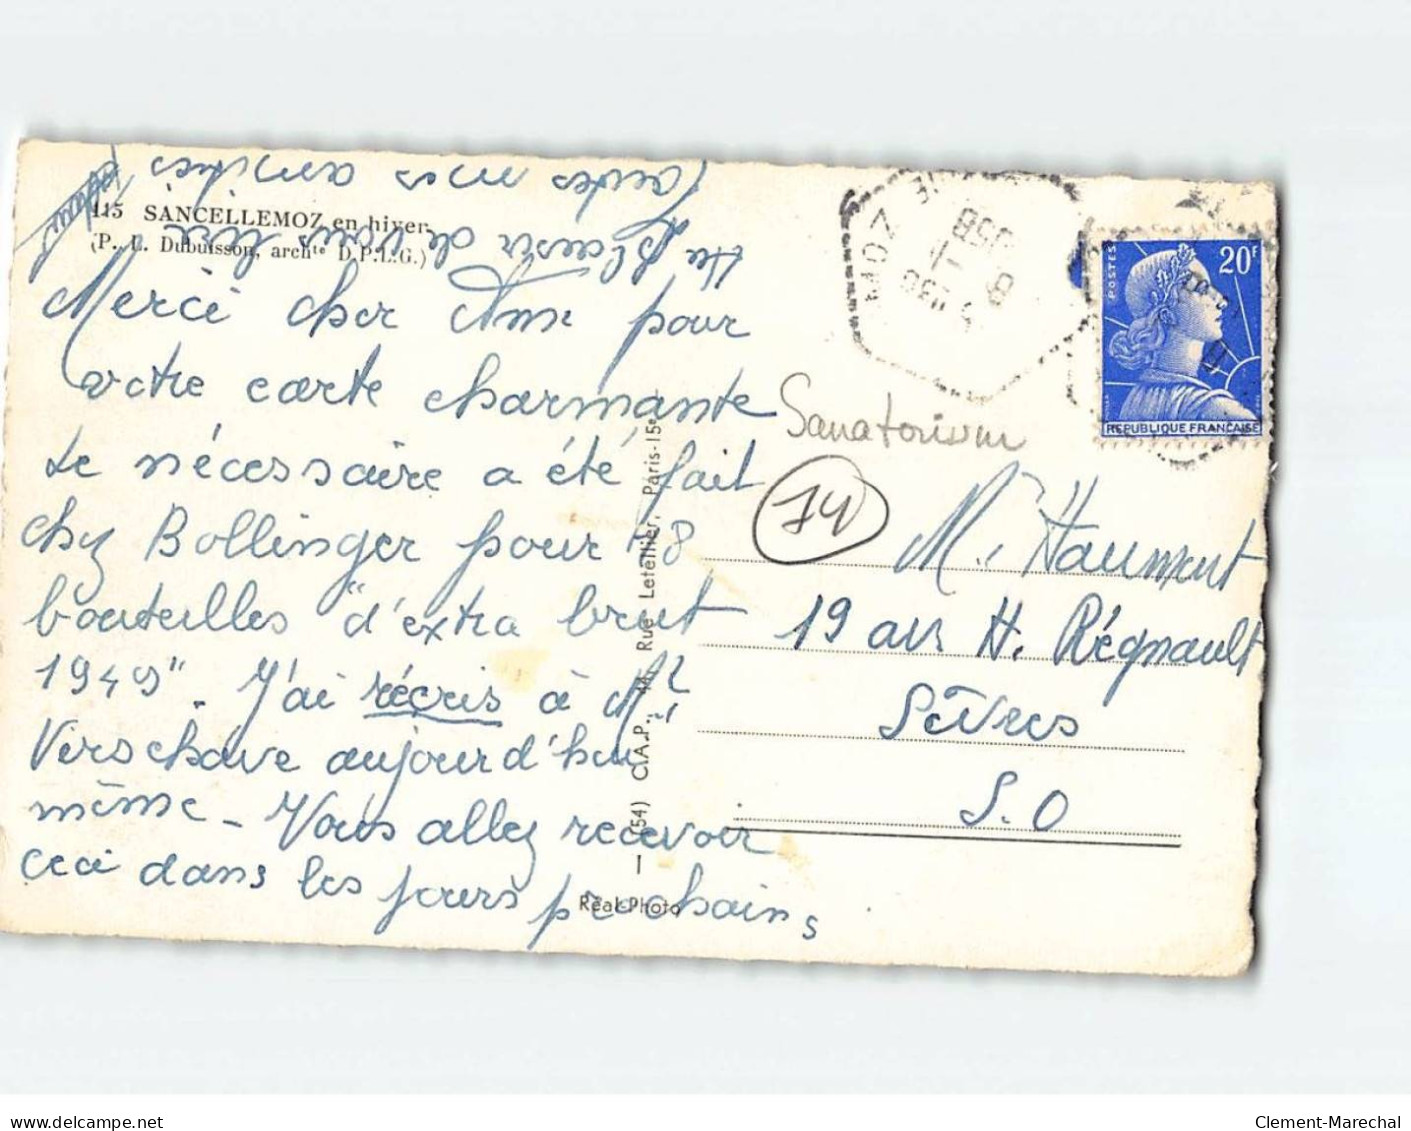 115 SANCELLEMOZ en hiver
(P. L. Dubuisson, archte D.P.L.G.)
Merci cher Ami pour
votre carte charmante
Le nécessaire a été fait
chez Bollinger pour 48
bouteilles "d'extra brut
1949". J'ai récris à Mr
Verschave aujourd'hui
même - Vous allez recevoir
ceci dans les jours prochains
Au plaisir de vous lire
Toutes mes amitiés
- (54) C.A.P. - M. Rue Letellier, Paris-15e
Real-Photo
MOZ
958
20F
POSTES
REPUBLIQUE FRANCAISE
Sanatorium
74
Mr Haumont
19 av H. Régnault
Sèvres
S.O
www.delcampe.net
Clement-Marechal